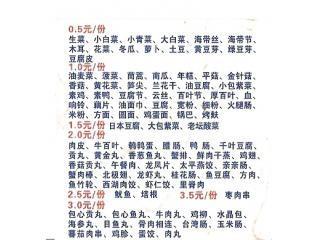 0.5元/份
生菜、小白菜、小青菜、大白菜、海带丝、海带节、
木耳、花菜、冬瓜、萝卜、土豆、黄豆芽、绿豆芽、
豆腐皮
1.0元/份
油麦菜、菠菜、茼蒿、南瓜、年糕、平菇、金针菇、
香菇、黄花菜、笋尖、兰花干、油豆腐、小包紫菜、
素鸡、素鸭、豆腐节、云丝、百叶节、厚百叶、血、
响铃、藕片、油面巾、豆腐、宽粉、细粉、火腿肠、
米粉、方面、圆面、鸡蛋面、锅巴、烤麸
1.5元/份 日本豆腐、大包紫菜、老坛酸菜
2.0元/份
肉皮、牛百叶、鹌鹑蛋、腊肠、鸭肠、千叶豆腐、
贡丸、黄金丸、香菜鱼丸、蟹排、鲜肉干蒸、鸡翅、
香菇贡丸、午餐肉、龙凤片、太平燕饺、亲亲肠、
蟹肉棒、北极翅、龙虾丸、桂花肠、鱼豆腐、方肉、
鱼竹轮、西湖肉饺、虾仁饺、里脊肉
2.5元/份 鱿鱼、培根 3.5元/份 枣肉串
3.0元/份
包心贡丸、包心鱼丸、牛肉丸、鸡柳、水晶包、
海参丸、目鱼丸、骨肉相连、台湾肠、玉米肠、
蕃茄肉串、鸡胗、蛋饺、肉丸